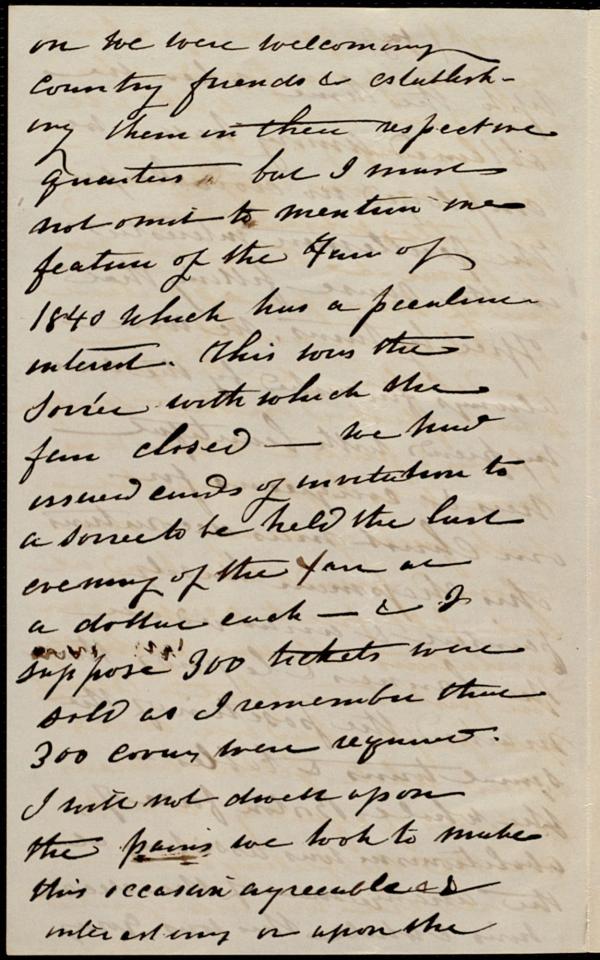 on we were welcoming
country friends & establish-
ing them in their respective
quarters but I must
not omit to mention one
feature of the Fair of
1840 which has a peculiar
interest. This was the
Soiree with which the
fair closed — we had
issued cards of invitation to
a soiree to be held the last
evening of the Fair at
a dollar each — & I
suppose 300 tickets were
sold as I remember that
300 covers were required.
I will not dwell upon
the pains we took to make
this occasion agreeable &
interesting or upon the